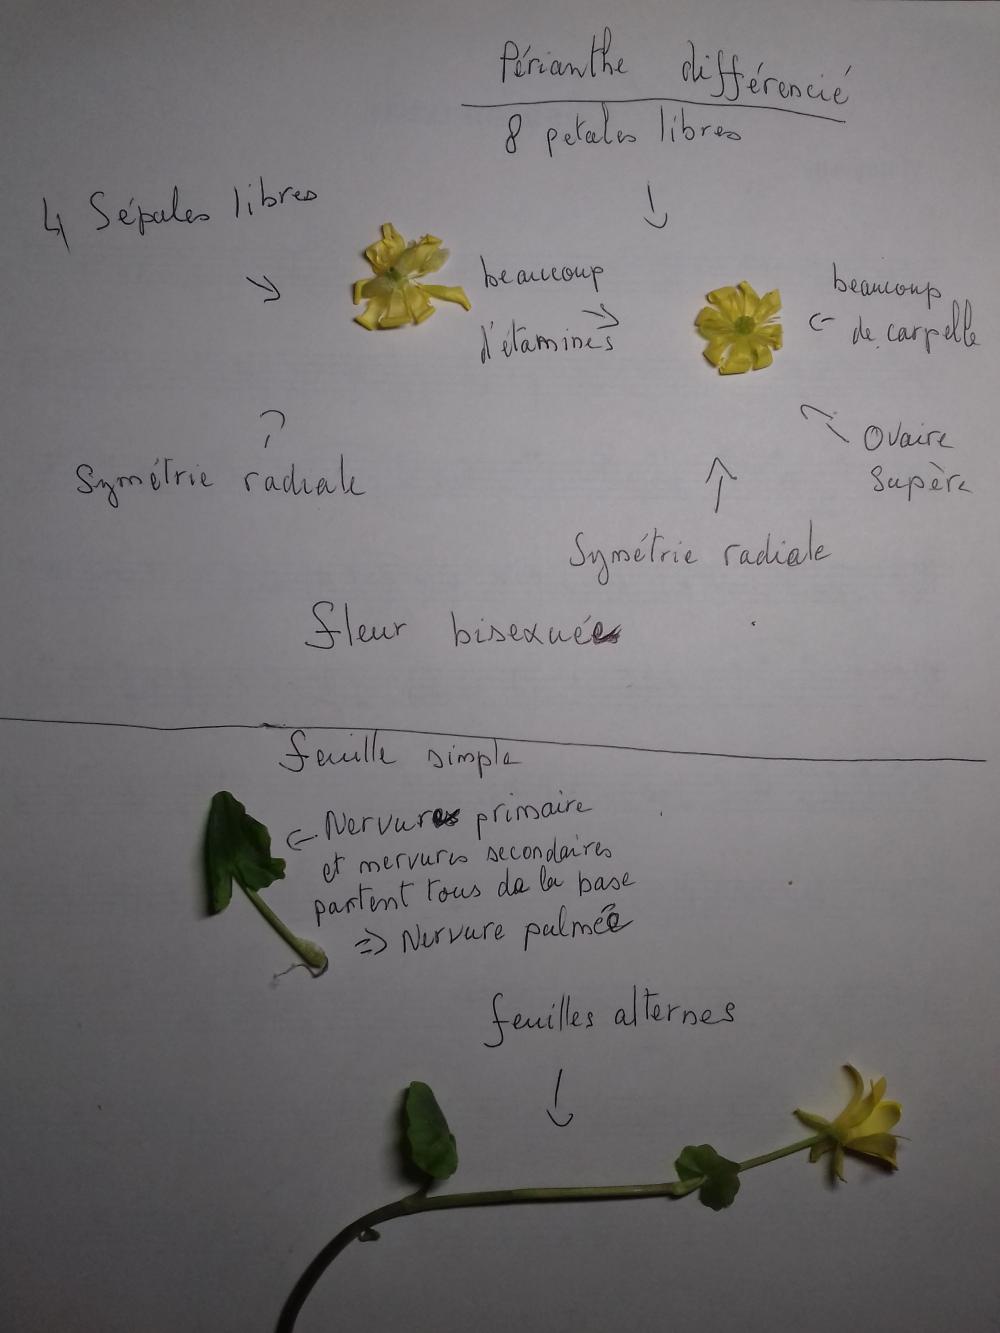 Périanthe différencié
8 petales libres
4 Sépales libres
beaucoup
d'étamines
beaucoup
de carpelle
Ovaire
Supère
Symétrie radiale
Symétrie radiale
fleur bisexué
feuille simple
Nervure primaire
et nervures secondaires
partent tous de la base
=> Nervure palmée
feuilles alternes